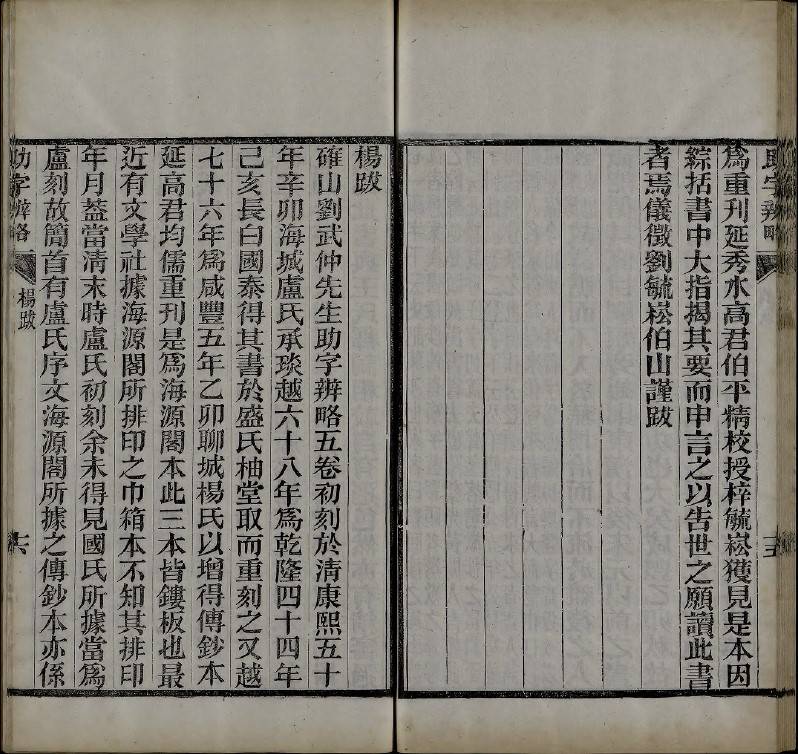 助字辨略
十五
為重刊延秀水高君伯平精校授梓毓崧獲見是本因
綜括書中大指揭其要而申言之以告世之願讀此書
者焉儀徵劉毓崧伯山謹跋
楊跋
確山劉武仲先生助字辨略五卷初刻於清康熙五十
年辛卯海城盧氏承琰越六十八年為乾隆四十四年
己亥長白國泰得其書於盛氏柚堂取而重刻之又越
七十六年為咸豐五年乙卯聊城楊氏以增得傳鈔本
延高君均儒重刊是為海源閣本此三本皆鏤板也最
近有文學社據海源閣所排印之巾箱本不知其排印
年月葢當清末時盧氏初刻余未得見國氏所據當為
盧刻故簡首有盧氏序文海源閣所據之傳鈔本亦係
助字辨略
楊跋
十六